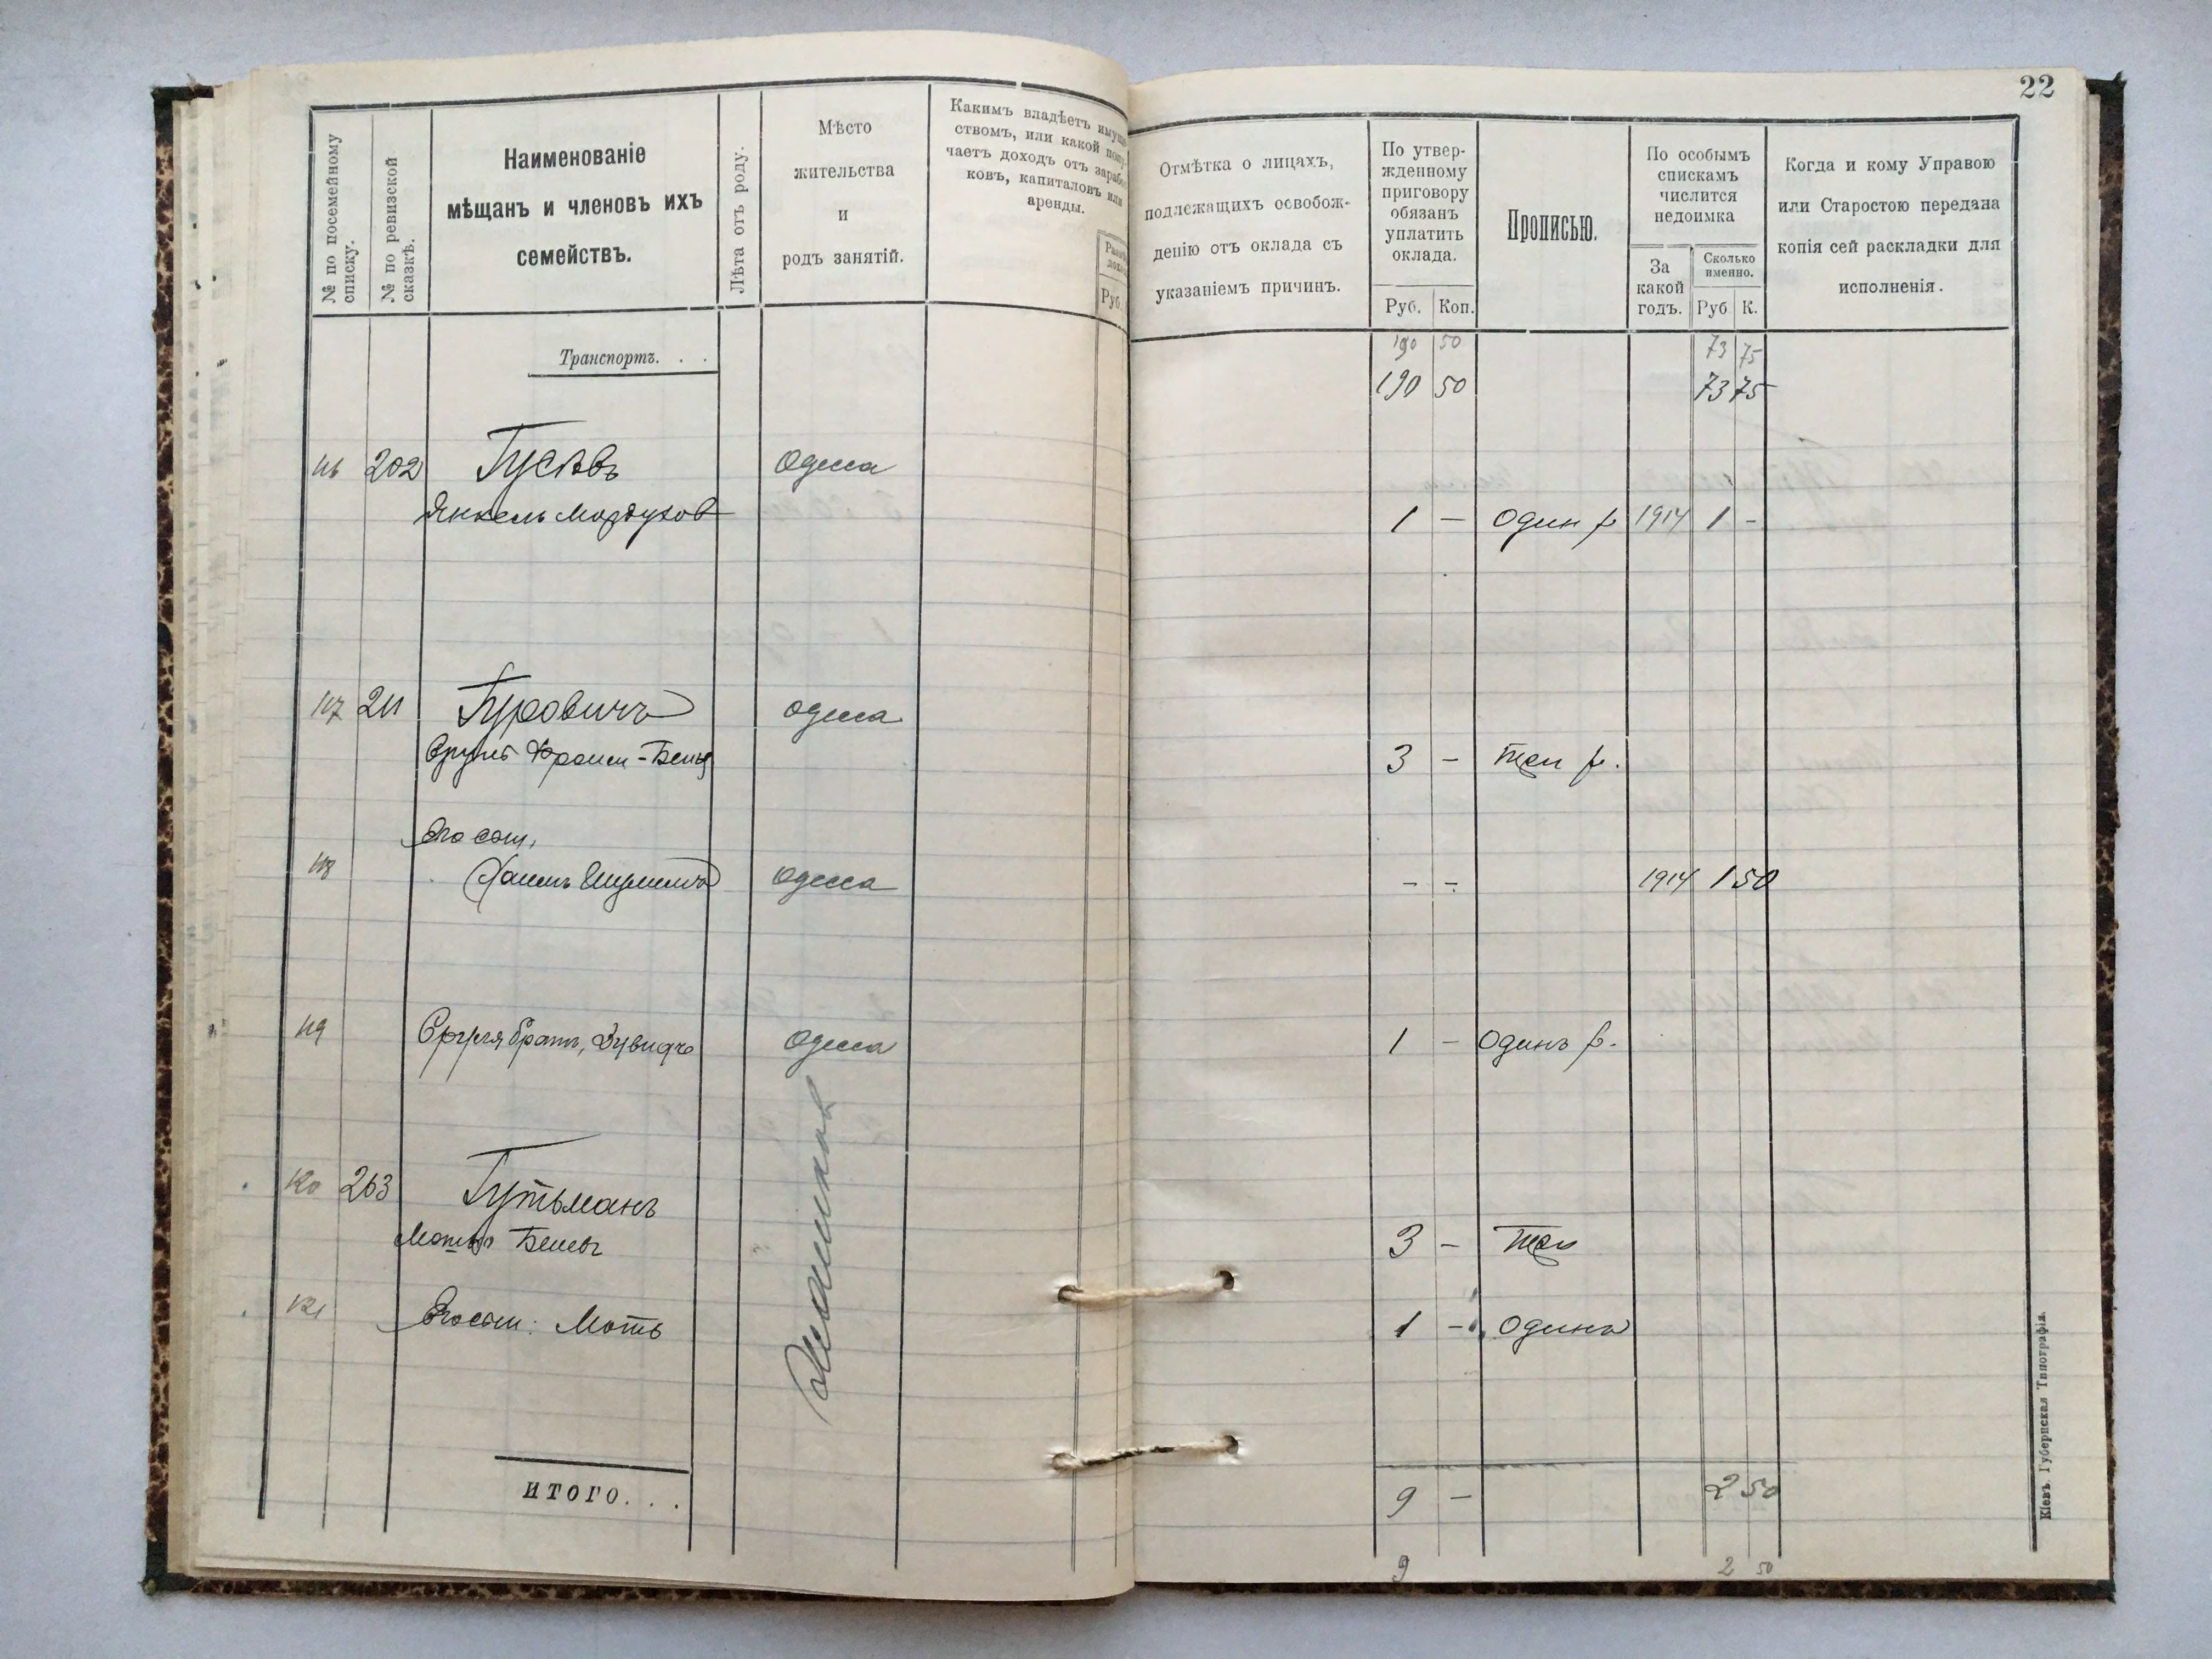 22
№ по посемейному
списку.
№ по ревизской
сказкѣ.
Наименованіе
мѣщанъ и членовъ ихъ
семействъ.
Лѣта отъ роду.
Мѣсто
жительства
и
родъ занятій.
Какимъ владѣетъ имущ
ствомъ, или какой полу-
чаетъ доходъ отъ зарабо
ковъ, капиталовъ или
аренды.
Руб
Отмѣтка о лицахъ,
подлежащихъ освобож-
денію отъ оклада съ
указаніемъ причинъ.
По утвер-
жденному
приговору
обязанъ
уплатить
оклада.
Руб. Коп.
Прописью.
По особымъ
спискамъ
числится
недоимка
За
какой
годъ.
Сколько
именно.
Руб К.
Когда и кому Управою
или Старостою передана
копія сей раскладки для
исполненія.
Транспортъ. . .
190 50 73 75
190 50 73 75
116 202 Гусевъ Одесса
Янкель Мордухов 1 — один р 1914 1 -
117 211 Гуровичъ Одесса
3 — три р.
Его сын,
118 Хаимъ Одесса - - 1914 1 50
119 Сруля братъ, Одесса 1 — Одинъ р.
120 263 Гутьманъ
3 — три
121 Его сын: Моть 1 — Одинъ
ИТОГО. . .
9 — 2 50
9 2 50
Кіевъ. Губернская Типографія.